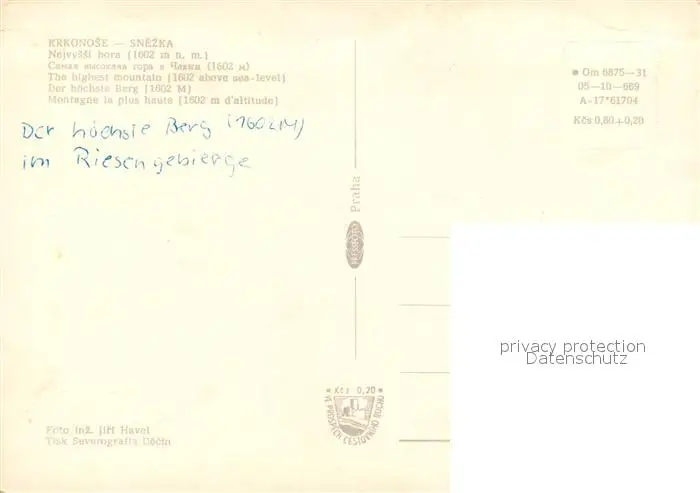 KRKONOŠE — SNĚŽKA
Nejvyšší hora (1602 m n. m.)
Самая высокая гора в Чехии (1602 м)
The highest mountain (1602 above sea-level)
Der höchste Berg (1602 M)
Montagne la plus haute (1602 m d'altitude)
Der höchste Berg (1602M)
im Riesengebierge
Om 6875—31
05—10—669
A-17*61704
Kčs 0,60+0,20
Praha
PRESSFOTO
privacy protection
Datenschutz
* Kčs 0,20 *
VE PROSPĚCH CESTOVNÍHO RUCHU
Foto inž. Jiří Havel
Tisk Severografia Děčín